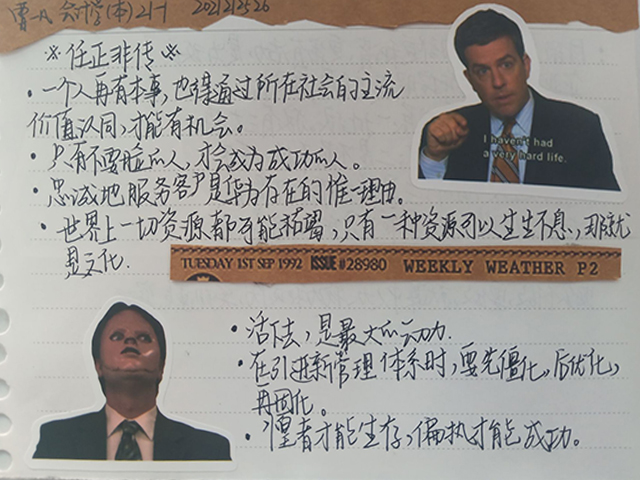 曹一凡 会计学(本)21-1 202121526
※任正非传※
·一个人再有本事,也得通过所在社会的主流
价值认同,才能有机会。
·只有不要脸的人,才会成为成功的人。
·忠诚地服务客户是华为存在的惟一理由。
·世界上一切资源都可能枯竭,只有一种资源可以生生不息,那就
是文化.
I haven't had
a very hard life.
TUESDAY 1ST SEP 1992 ISSUE #28980 WEEKLY WEATHER P2
·活下去,是最大的动力.
·在引进新管理体系时,要先僵化,后优化,
再固化。
·惶者才能生存,偏执才能成功。